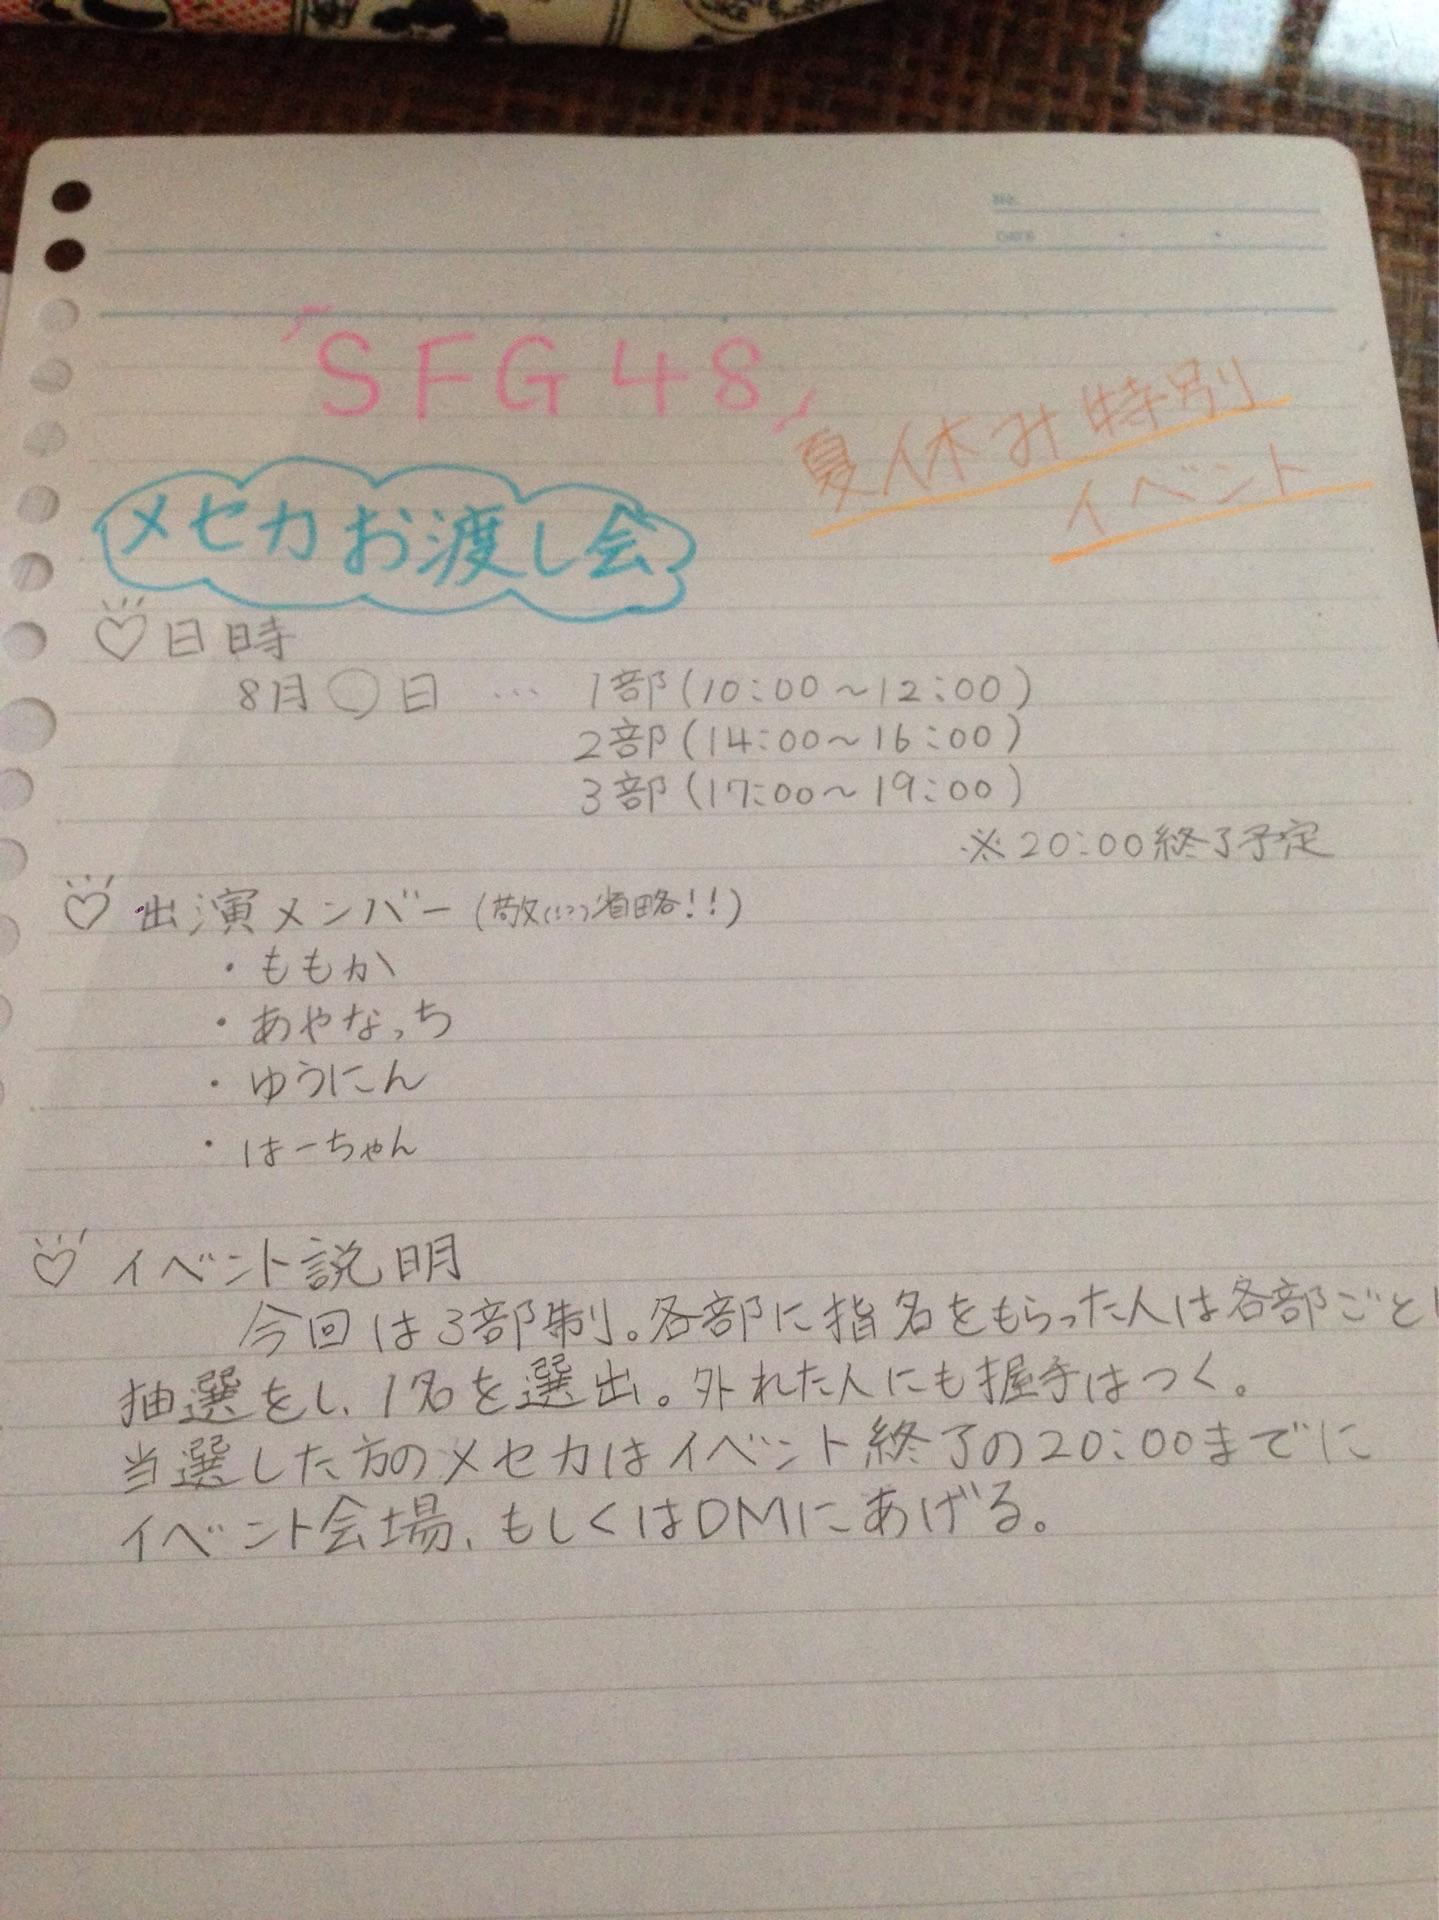 No.
DATE
「SFG48」
夏休み特別
イベント
メセカお渡し会
♡日時
8月○日 … 1部(10:00~12:00)
2部(14:00~16:00)
3部(17:00~19:00)
※20:00終了予定
♡出演メンバー(敬(!?)省略!!)
・ももか
・あやなっち
・ゆうにん
・はーちゃん
♡イベント説明
今回は3部制。各部に指名をもらった人は各部ごと
抽選をし、1名を選出。外れた人にも握手はつく。
当選した方のメセカはイベント終了の20:00までに
イベント会場、もしくはDMにあげる。